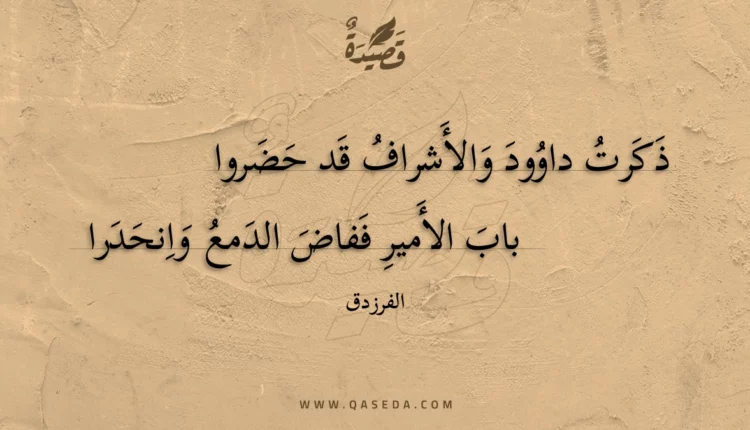 قَصِيْدَةٌ
ذَكَرتُ داوُودَ وَالأَشرافُ قَد حَضَروا
بابَ الأَميرِ فَفاضَ الدَمعُ وَاِنحَدَرا
الفرزدق
WWW.QASEDA.COM